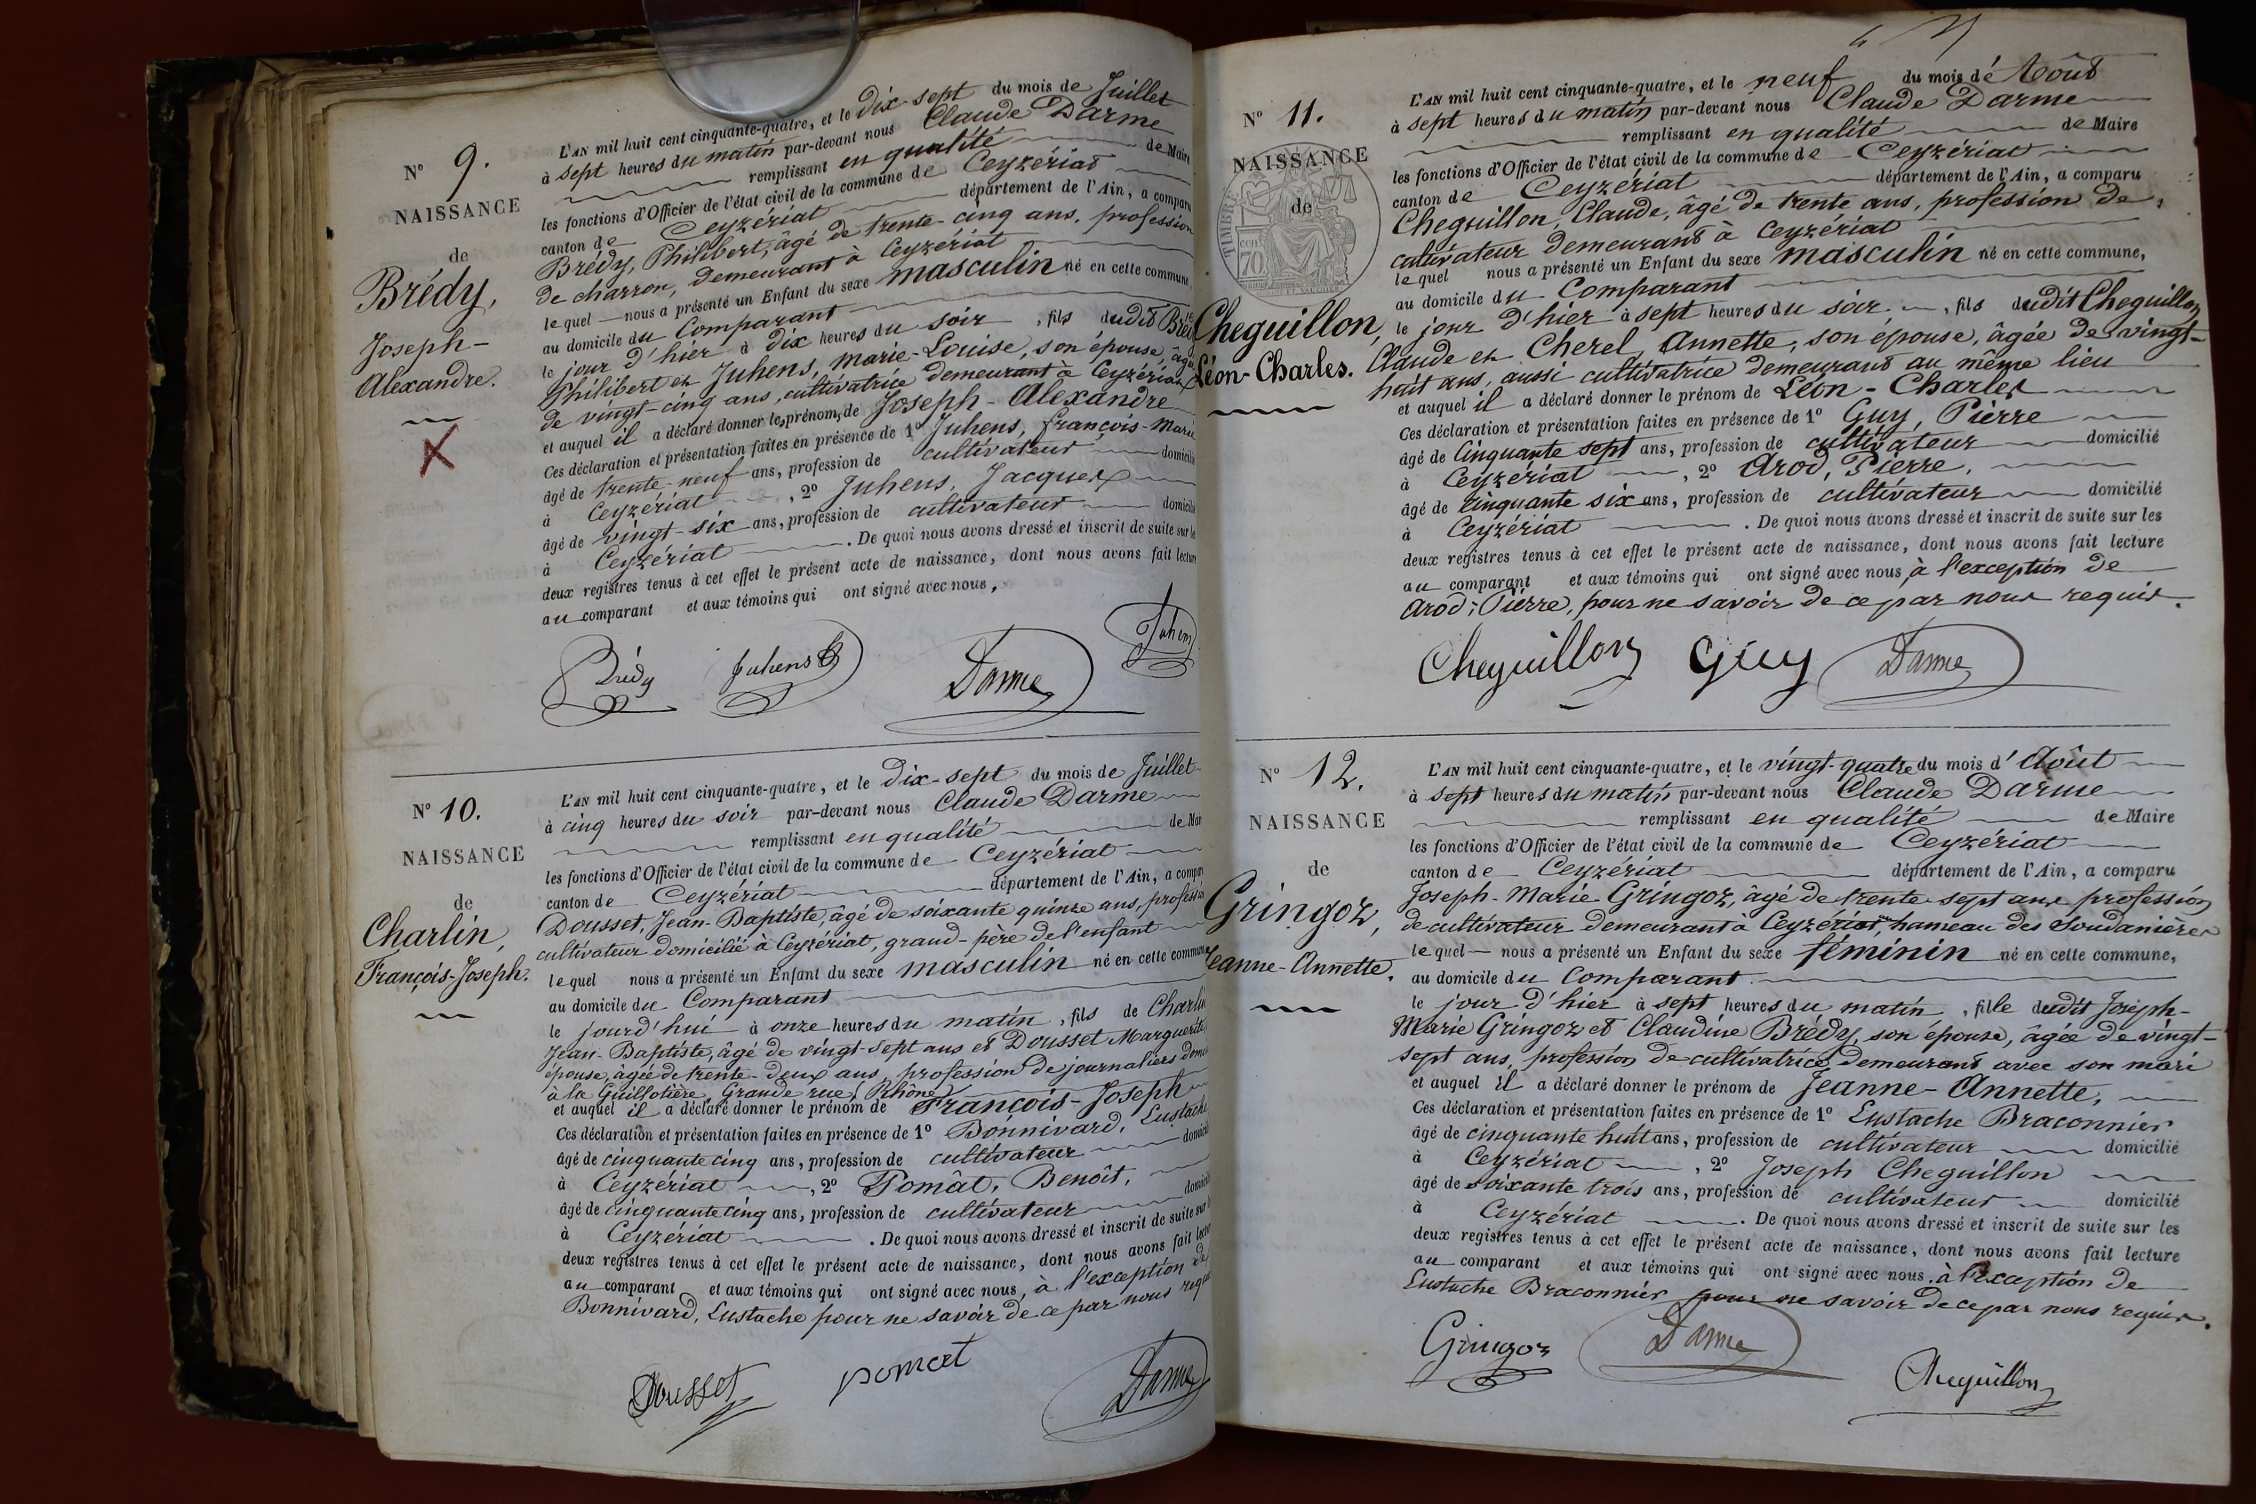 N° 9.
NAISSANCE
de
Brédy,
Joseph-
Alexandre.
L'AN mil huit cent cinquante-quatre, et le Dix-sept du mois de Juillet
à sept heures du matin par-devant nous Claude Darme
remplissant en qualité de Maire
les fonctions d'Officier de l'état civil de la commune de Ceyzériat
canton de Ceyzériat département de l'Ain, a comparu
Brédy, Philibert, âgé de trente-cinq ans, profession
de charron, demeurant à Ceyzériat
lequel nous a présenté un Enfant du sexe masculin né en cette commune,
au domicile du Comparant
le jour d'hier à dix heures du soir, fils dudit
Philibert et Juhens, Marie-Louise, son épouse,
de vingt-cinq ans, cultivatrice demeurant à Ceyzériat
et auquel il a déclaré donner les prénom, de Joseph-Alexandre
Ces déclaration et présentation faites en présence de 1° Juhens, françois-Marie
âgé de trente-neuf ans, profession de cultivateur
à Ceyzériat, 2° Juhens, Jacques
âgé de vingt-six ans, profession de cultivateur
à Ceyzériat. De quoi nous avons dressé et inscrit de suite sur
deux registres tenus à cet effet le présent acte de naissance, dont nous avons fait lecture
au comparant et aux témoins qui ont signé avec nous,
Brédy Juhens Darme Juhens
N° 10.
NAISSANCE
de
Charlin,
François-Joseph.
L'AN mil huit cent cinquante-quatre, et le Dix-sept du mois de Juillet
à cinq heures du soir par-devant nous Claude Darme
remplissant en qualité de
les fonctions d'Officier de l'état civil de la commune de Ceyzériat
canton de Ceyzériat département de l'Ain, a
Dousset, Jean-Baptiste, âgé de soixante quinze ans,
cultivateur domicilié à Ceyzériat, grand-père de l'enfant
lequel nous a présenté un Enfant du sexe masculin né en cette commune
au domicile du Comparant
le jourd'hui à onze heures du matin, fils de
Jean-Baptiste, âgé de vingt-sept ans et Dousset Marguerite
épouse, âgée de trente-deux ans, profession de journaliers
à la Guillotière, Grande rue (Rhône)
et auquel il a déclaré donner le prénom de François-Joseph
Ces déclaration et présentation faites en présence de 1° Bonnivard, Eustache
âgé de cinquante cinq ans, profession de cultivateur
à Ceyzériat, 2° Pomât, Benoît,
âgé de cinquante cinq ans, profession de cultivateur
à Ceyzériat. De quoi nous avons dressé et inscrit de suite
deux registres tenus à cet effet le présent acte de naissance, dont nous avons fait
au comparant et aux témoins qui ont signé avec nous, à l'exception de
Bonnivard, Eustache pour ne savoir de ce par nous
Dousset pomat Darme
N° 11.
NAISSANCE
de
TIMBRE
70
Cheguillon,
Léon-Charles.
L'AN mil huit cent cinquante-quatre, et le neuf du mois d'Août
à sept heures du matin par-devant nous Claude Darme
remplissant en qualité de Maire
les fonctions d'Officier de l'état civil de la commune de Ceyzériat
canton de Ceyzériat département de l'Ain, a comparu
Cheguillon, Claude, âgé de trente ans, profession de
cultivateur demeurant à Ceyzériat
lequel nous a présenté un Enfant du sexe masculin né en cette commune,
au domicile du Comparant
le jour d'hier à sept heures du soir, fils dudit Cheguillon
Claude et Cherel, Annette, son épouse, âgée de vingt-
huit ans, aussi cultivatrice demeurant au même lieu
et auquel il a déclaré donner le prénom de Léon-Charles
Ces déclaration et présentation faites en présence de 1° Guy, Pierre
âgé de Cinquante sept ans, profession de cultivateur domicilié
à Ceyzériat, 2° Arod, Pierre,
âgé de Cinquante six ans, profession de cultivateur domicilié
à Ceyzériat. De quoi nous avons dressé et inscrit de suite sur les
deux registres tenus à cet effet le présent acte de naissance, dont nous avons fait lecture
au comparant et aux témoins qui ont signé avec nous, à l'exception de
Arod, Pierre, pour ne savoir de ce par nous requis.
Cheguillon Guy Darme
N° 12.
NAISSANCE
de
Gringoz,
Jeanne-Annette.
L'AN mil huit cent cinquante-quatre, et le vingt-quatre du mois d'Août
à sept heures du matin par-devant nous Claude Darme
remplissant en qualité de Maire
les fonctions d'Officier de l'état civil de la commune de Ceyzériat
canton de Ceyzériat département de l'Ain, a comparu
Joseph-Marie Gringoz, âgé de trente-sept ans profession
de cultivateur demeurant à Ceyzériat, hameau des Soudanières
lequel nous a présenté un Enfant du sexe féminin né en cette commune,
au domicile du Comparant
le jour d'hier à sept heures du matin, fille dudit Joseph-
Marie Gringoz et Claudine Brédy, son épouse, âgée de vingt-
sept ans, profession de cultivatrice demeurant avec son mari
et auquel il a déclaré donner le prénom de Jeanne-Annette,
Ces déclaration et présentation faites en présence de 1° Eustache Braconnier
âgé de cinquante huit ans, profession de cultivateur domicilié
à Ceyzériat, 2° Joseph Cheguillon
âgé de soixante trois ans, profession de cultivateur domicilié
à Ceyzériat. De quoi nous avons dressé et inscrit de suite sur les
deux registres tenus à cet effet le présent acte de naissance, dont nous avons fait lecture
au comparant et aux témoins qui ont signé avec nous, à l'exception de
Eustache Braconnier pour ne savoir de ce par nous requis.
Gringoz Darme Cheguillon